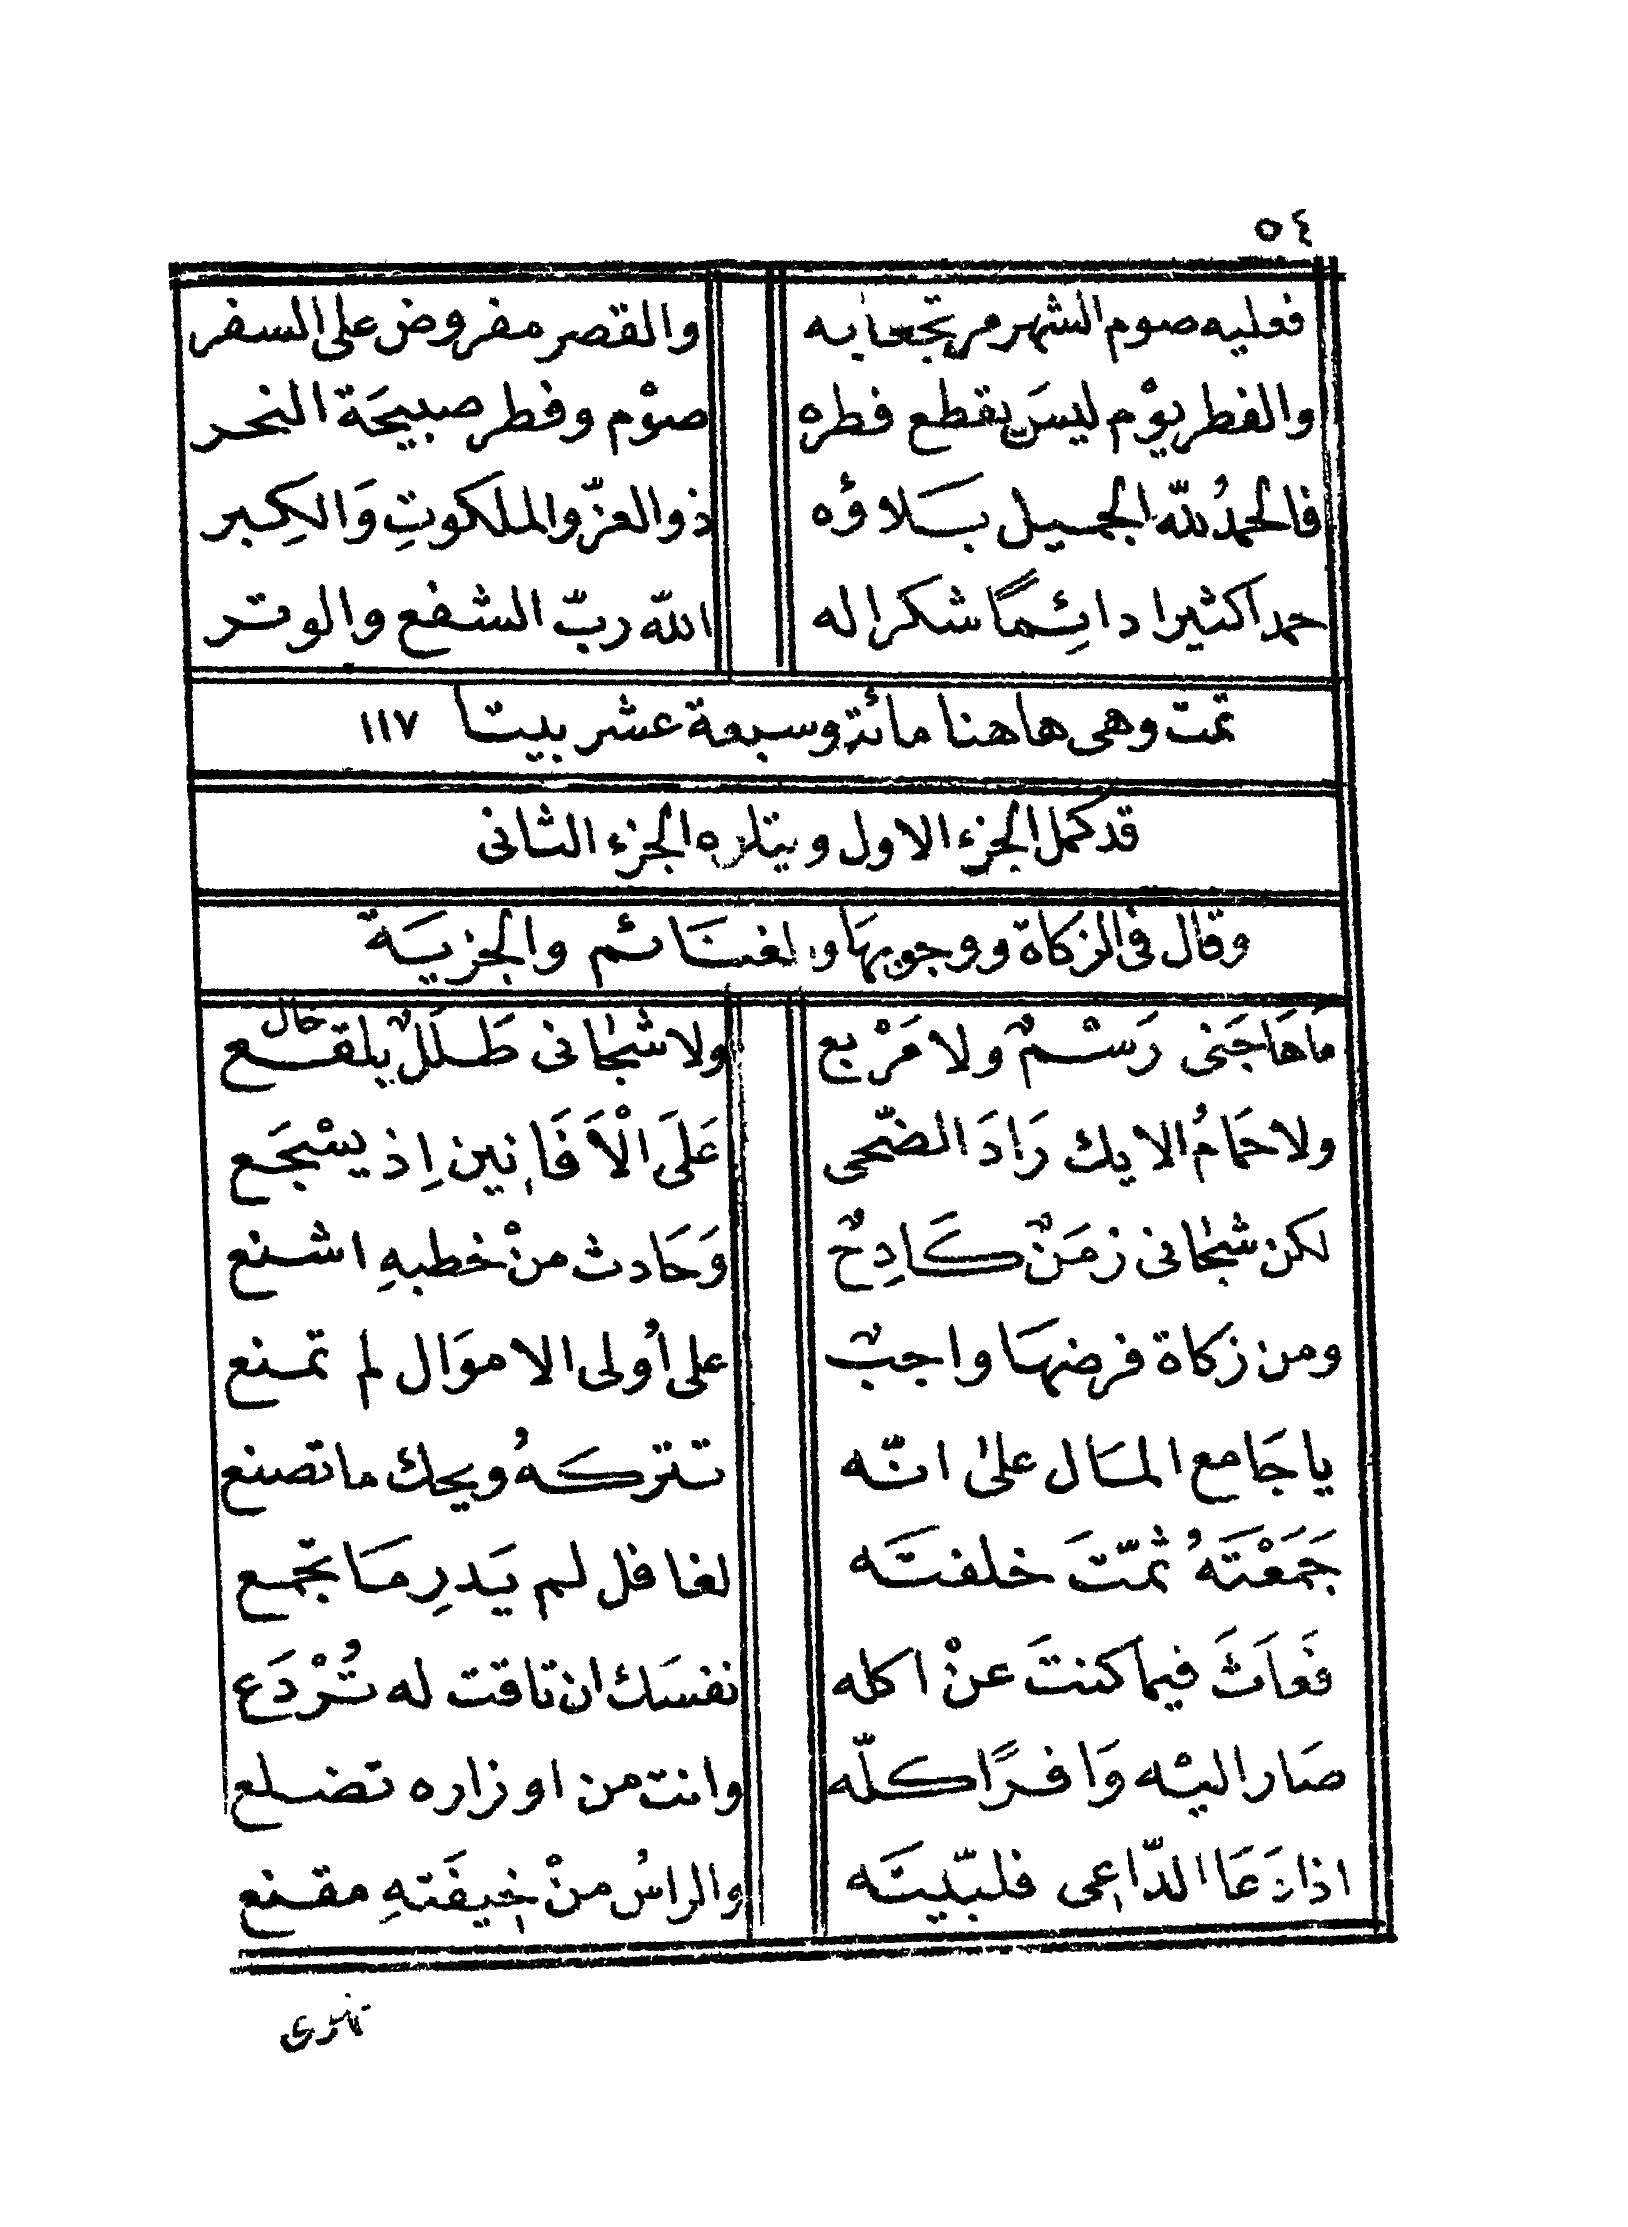 ٥٤
فعليه صوم الشهر مرتجعا به والقصر مفروض على السفر
والفطر يوْم ليسَ يقطع فطره صوْم وفطر صبيحَة النحر
فالحمدُ للّه الجميل بَلاؤه ذوالعزّ والملكوتِ وَالكِبر
حمدا كثيرا دائِمًا شكرا له اللّه ربّ الشفع والوتر
تمت وهى هاهنا مائة وسبعة عشر بيتا ١١٧
قد كمل الجزء الاول ويتلوه الجزء الثانى
وقال فى الزكاة ووجوبها والغنائم والجزية
خال
مَا هَاجَنى رَسْمٌ ولا مَرْبع ولا شجانى طَلَلٌ يلقع
ولا حمَامُ الايك رَادَ الضّحى عَلَى الْأَفَانِين إِذ يسْجَع
لكن شجانى زمَنٌ كَادِحٌ وَحَادث منْ خطبهِ اشنع
ومن زكاة فرضهَا واجبٌ على أولى الاموَال لم تمنع
يا جَامع المَال على انّه تتركهُ ويحك ما تصنع
جَمَعْتَهُ ثمّتَ خلفتَه لغافل لم يَدرِ مَا تجمع
فَعَاثَ فيما كنتَ عنْ اكله نفسَك ان تاقت له تُرْدَع
صَار اليْه وَافرًا كلّه وانت من اوزاره تضلع
اذا دَعَا الدّاعِى فلبّيتَه والراسُ منْ خِيفَتهِ مقنع